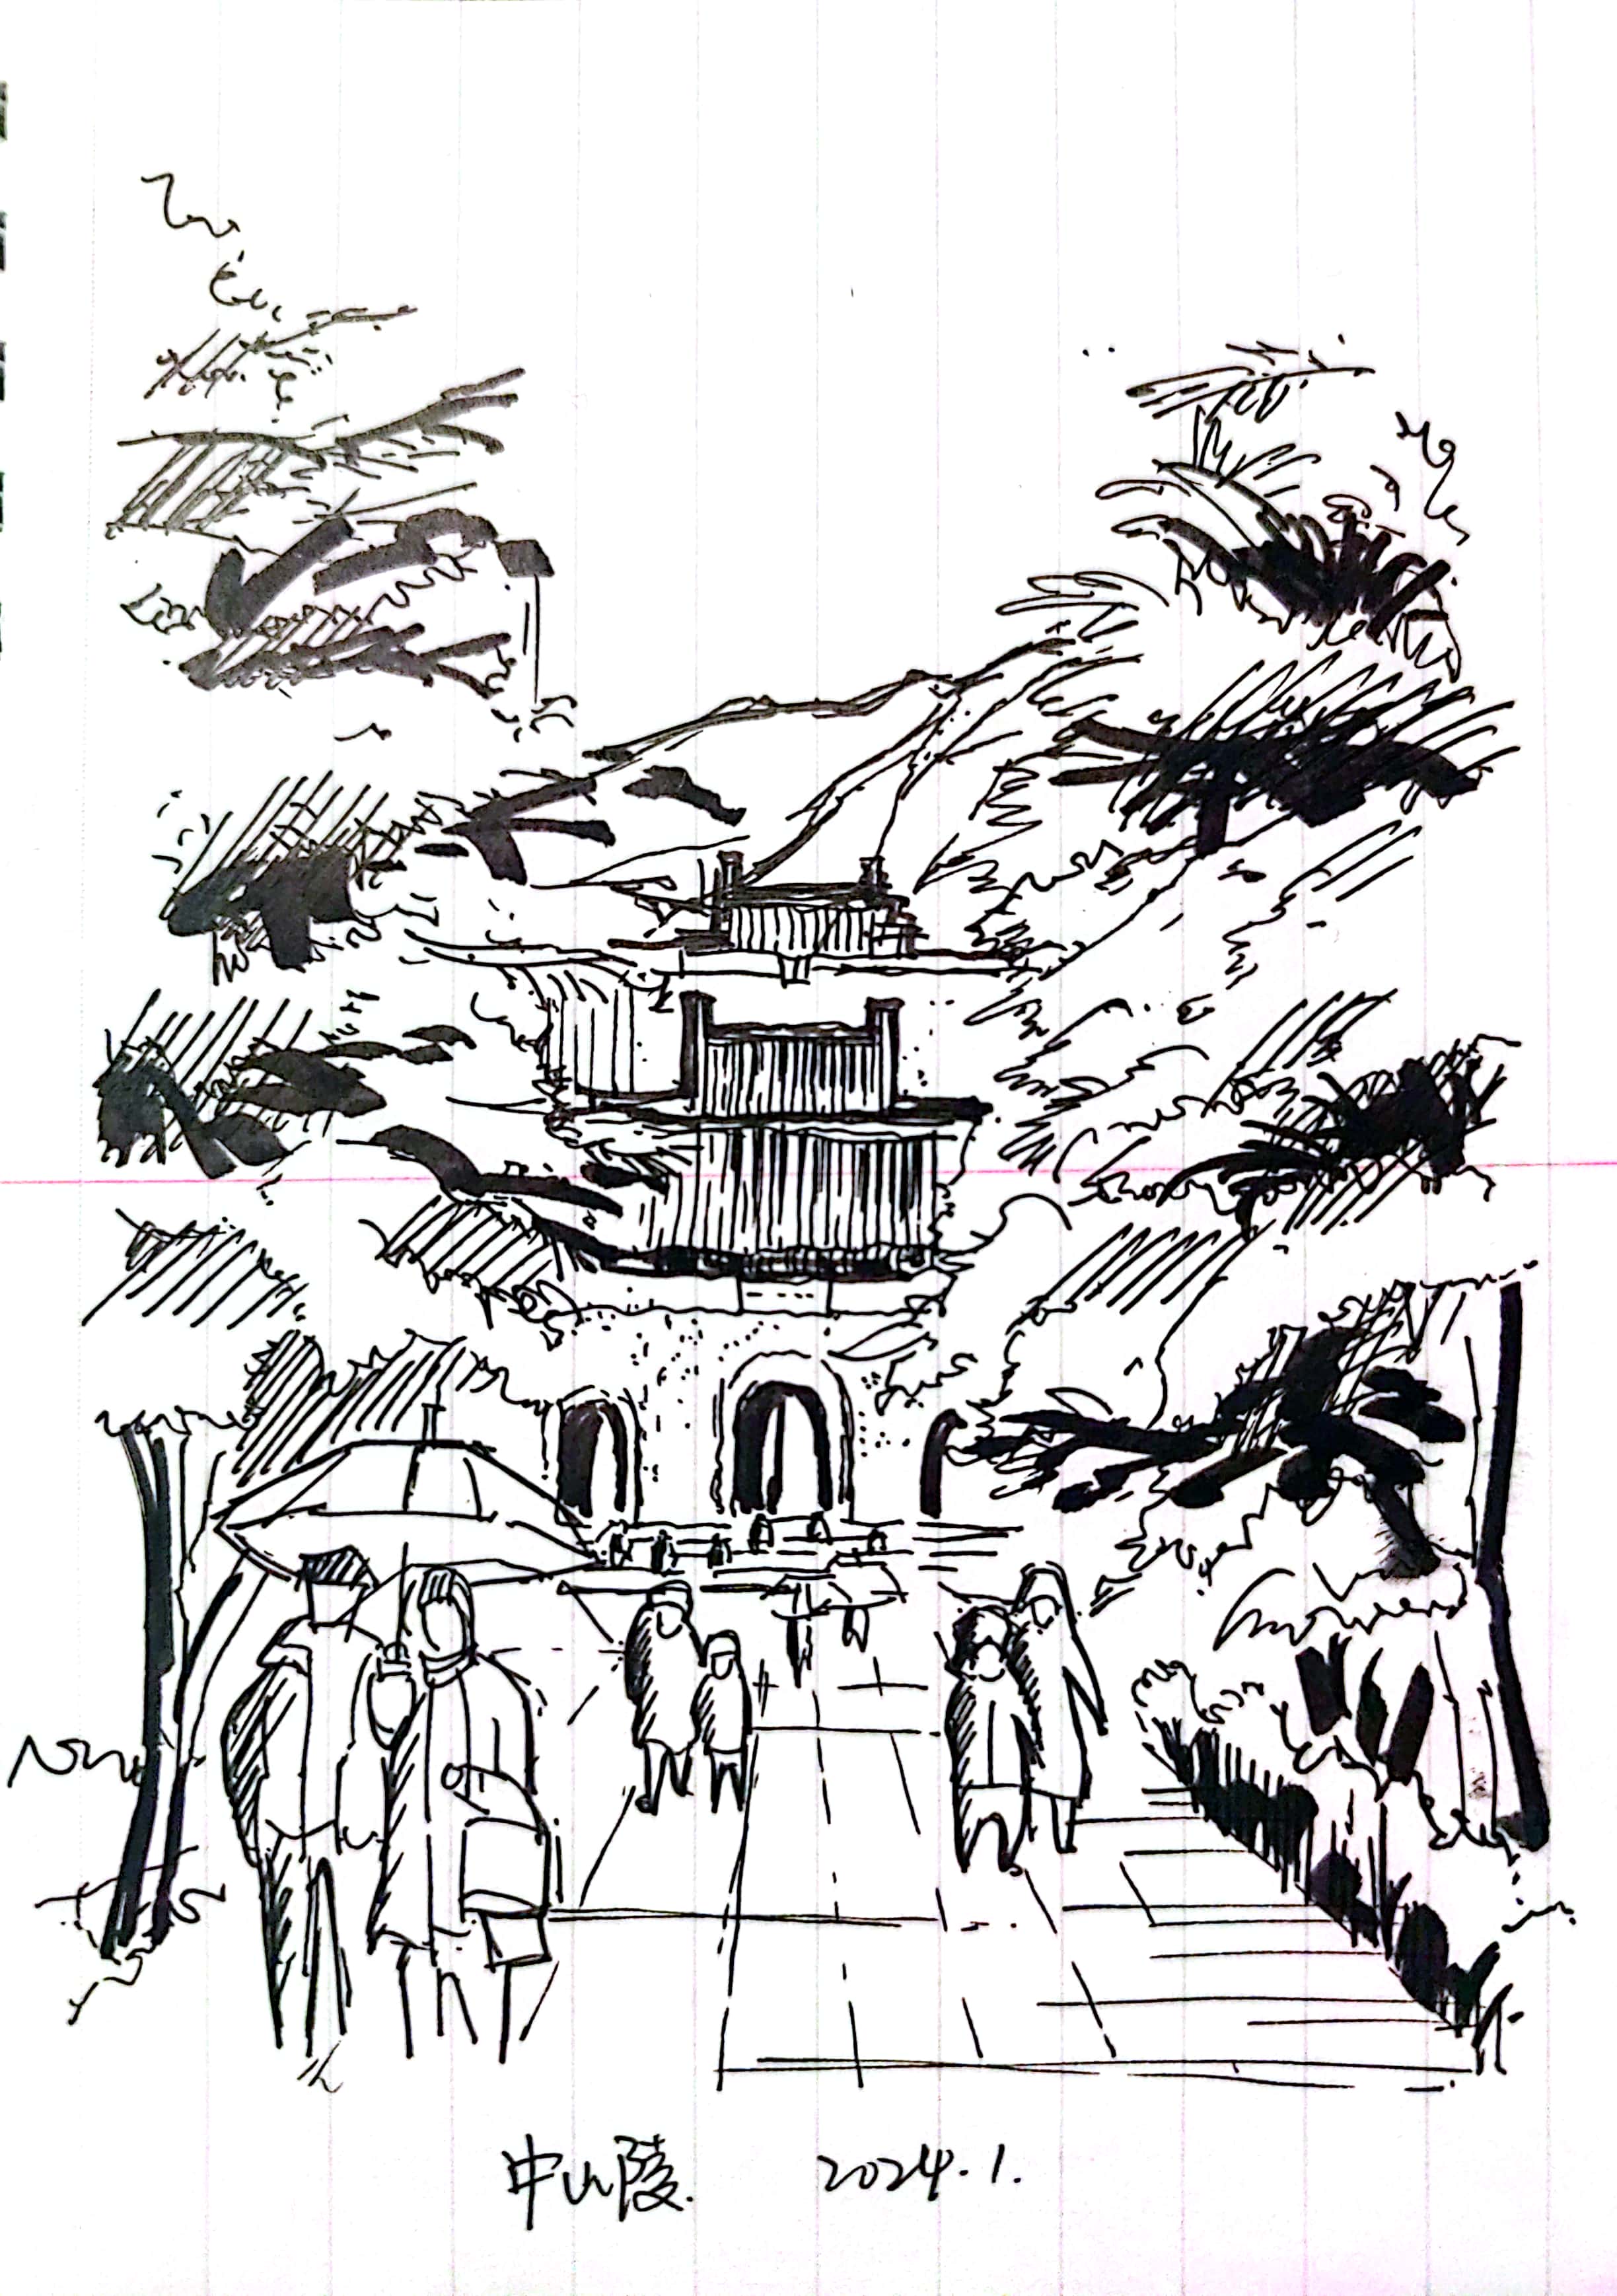 中山陵. 2024.1.